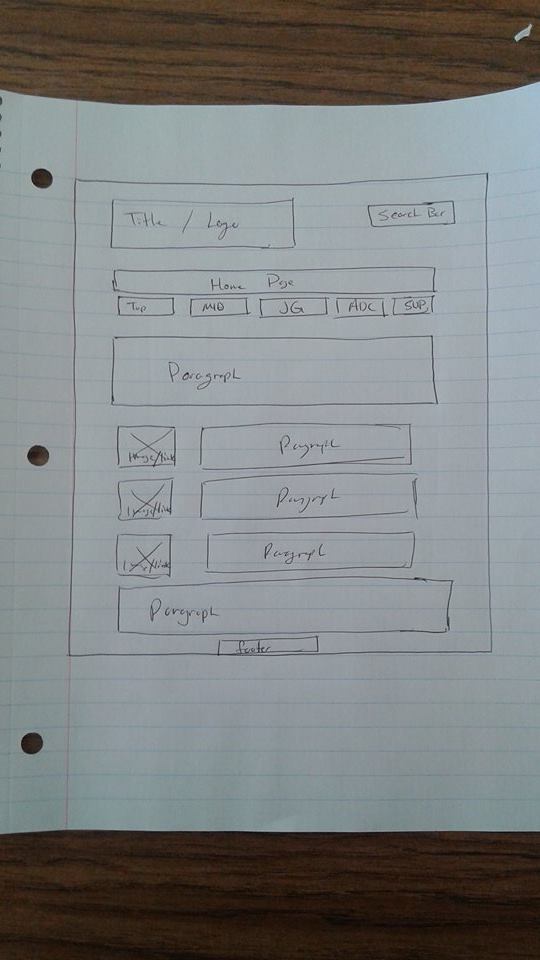 Title / Logo
Search Bar
Home Page
Top MID JG ADC SUP
Paragraph
Image/link Paragraph
Image/link Paragraph
Image/link Paragraph
Paragraph
footer